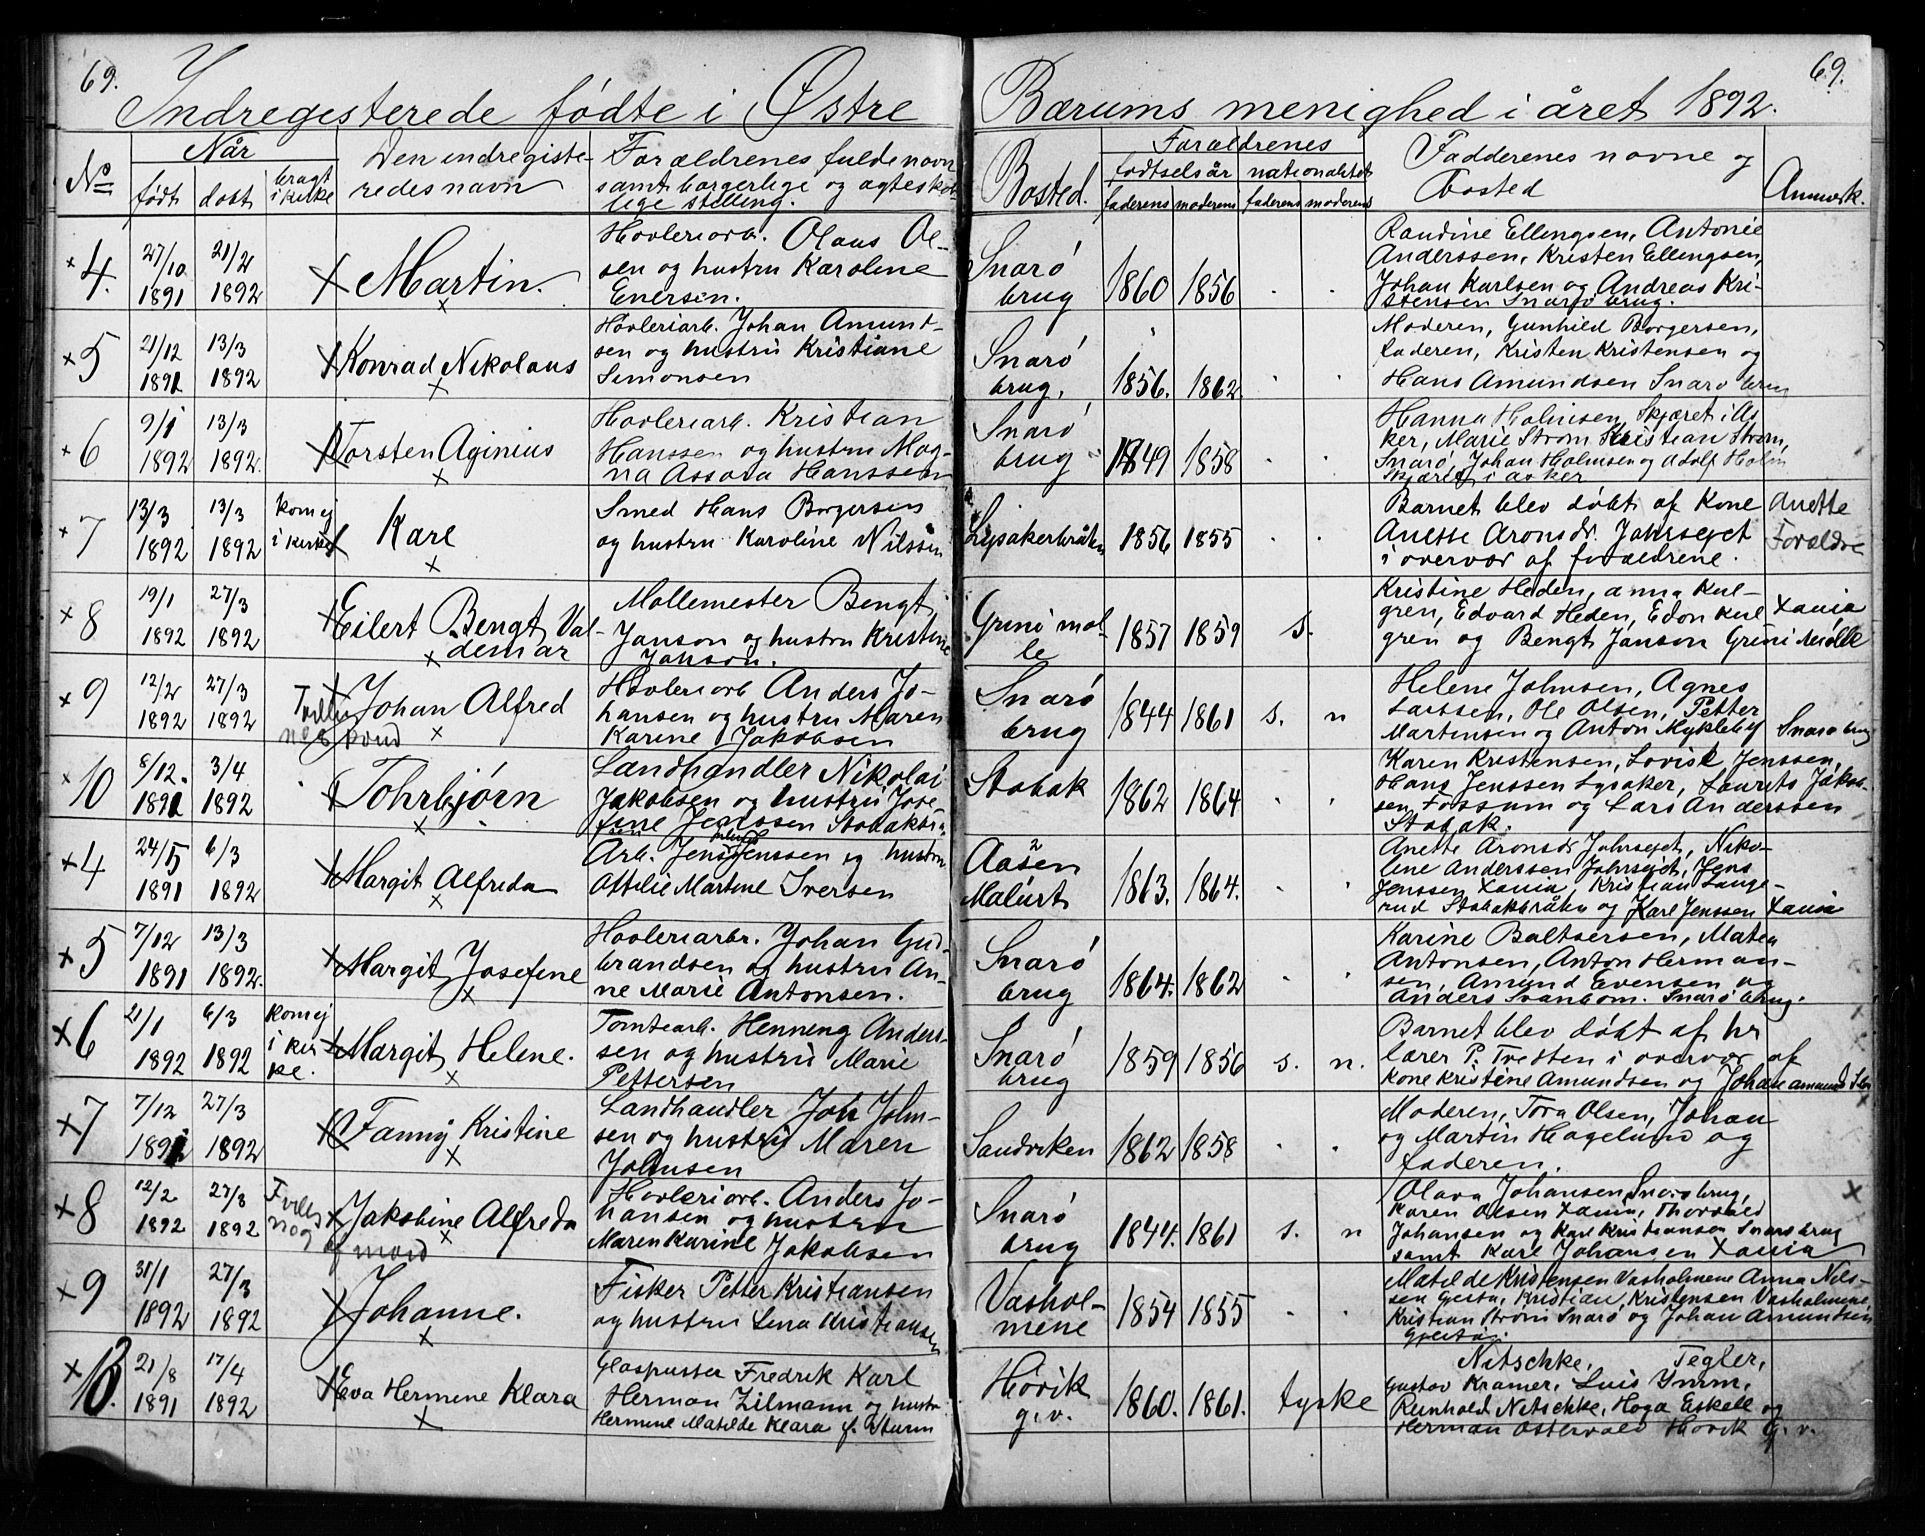 69.
69.
Indregisterede fødte i Østre Bærums menighed i året 1892.
No
Når
født
døbt
bragt i kirke
Den indregiste-
redes navn
Forældrenes fulde navn
samt borgerlige og ægteskab-
lige stilling.
Bosted.
Forældrenes
fødtselsår
nationalitet
faderens
moderens
faderens
moderens
Fadderenes navne og
bosted
Anmerk.
×4. 27/10 1891 21/2 1892
Martin.
Høvleriarb. Olaus Ol-
sen og hustru Karoline
Enersen.
Snarø
brug
1860 1856
Randine Ellengsen, Antonie
Anderssen, Kristen Ellengsen,
Johan Karlsen og Andreas Kri-
stensen Snarø brug.
×5 21/12 1891 13/3 1892
Konrad Nikolaus
Høvleriarb. Johan Amund-
sen og hustru Kristiane
Simonsen
Snarø
brug.
1856. 1862
Moderen, Gunhild Borgersen,
faderen, Kristen Kristensen og
Hans Amundsen Snarø brug
×6 9/1 1892 13/3 1892.
Torsten Aginius
Høvleriarb. Kristian
Hanssen og hustru Mag-
na Hanssen
Snarø
brug
1849 1858
Hanna Holmsen, Skjæret i As-
ker, Marie Strøm Kristian Strøm,
Snarø, Johan Holmsen og Adolf Holm
Skjæret i Asker
×7 13/3 1892 13/3 1892
kom ej
i kirke
Karl
Smed Hans Borgersen
og hustru Karoline Nilssen
Lysakerbråten
1856 1855
Barnet blev døbt af Kone
Anette Aronsdr. Jahrsejet
i overvær af forældrene.
Anette
Forældre
×8 19/1 1892 27/3 1892
Eilert Bengt Val-
demar
Møllemester Bengt
Janson og hustru Kristine
Janson.
Grini møl-
le
1857 1859 s.
Kristine Heden, Anna Kul-
gren, Edvard Heden, Edon Kul
gren og Bengt Janson Grini Mølle
Xania
×9 12/2 1892 27/3 1892
Johan Alfred
Høvleriarb Anders Jo-
hansen og hustru Maren
Karine Jakobsen
Snarø
brug
1844 1861 s. n
Helene Johnsen, Agnes
Larssen, Ole Olsen, Petter
Martensen og Anton Mykleby
Snarø brug
×10 8/12. 1891 3/4 1892
Tohrbjørn
Landhandler Nikolai
Jakobsen og hustru Jose-
fine Jenssen
Stabæk
1862 1864
Karen Kristensen, Lovise Jenssen,
Hans Jenssen Lysaker, Laurits Jakob-
sen Fossum og Lars Anderssen
Stabæk.
×4 24/5 1891 6/3 1892
Margit Alfreda
Arb. Jens Jenssen og hustru
Ottilie Martine Iversen
Aasen
1863. 1864.
Anette Aronsdr Jahrsejet, Niko-
line Anderssen Jahrsejet, Jens
Jenssen Xania, Kristian Lange-
rud Stabækbråten og Karl Jenssen Xania
×5 7/12 1891 13/3 1892.
Margit Josefine
Høvleriarbr. Johan Gud-
brandsen og hustru An-
ne Marie Antonsen.
Snarø
brug
1864. 1862
Karine Baltsersen, Matea
Antonsen, Anton Herman-
sen, Amund Evensen og
Anders Svanbom. Snarø brug.
×6 21/1 1892 6/3 1892
kom ej
i kir-
ke.
Margit Helene.
Tomtearb. Henning Anders-
sen og hustru Marie
Pettersen
Snarø
brug
1859 1856 s. n.
Barnet blev døbt af hr
lærer P. Tresten i overvær af
Kone Kristine Amundsen og Johan
×7 7/12 1891 27/3 1892
Fanny Kristine
Landhandler Joh John-
sen og hustru Maren
Johnsen
Sandviken
1862 1858
Moderen, Tora Olsen, Johan
og Martin Hagelund og
faderen.
×8 12/2 1892 27/3 1892
Jakobine Alfreda
Høvleriarb. Anders Jo-
hansen og hustru
Maren Karine Jakobsen
Snarø
brug
1844. 1861 s. n
Olava Johansen Snarø brug,
Karen Olsen Xania, Thorvald
Johansen og Karl Kristiansen Snarø brug
samt Karl Johansen Xania
×
×9 31/1 1892 27/3 1892
Johanne.
Fisker Petter Kristiansen
og hustru Lena Kristiansen
Vashol-
mene
1854 1855
Matilde Kristensen Vasholmene Anna Nils-
sen Kristian Kristensen Vasholmene,
Kristian Strøm Snarø og Johan Amundsen
×10. 21/8 1891 17/4 1892
Eva Hermine Klara
Glaspusser Fredrik Karl
Herman Zilmann og hustru
Hermine Matilde Klara f. Sturm
Høvik
g.v.
1860. 1861. tyske
Nitschke, Tegler,
Gustav Kramer, Luis Imm,
Reinhold Nitschke, Hoga Eskell og
Herman Ostervald Høvik g.v.